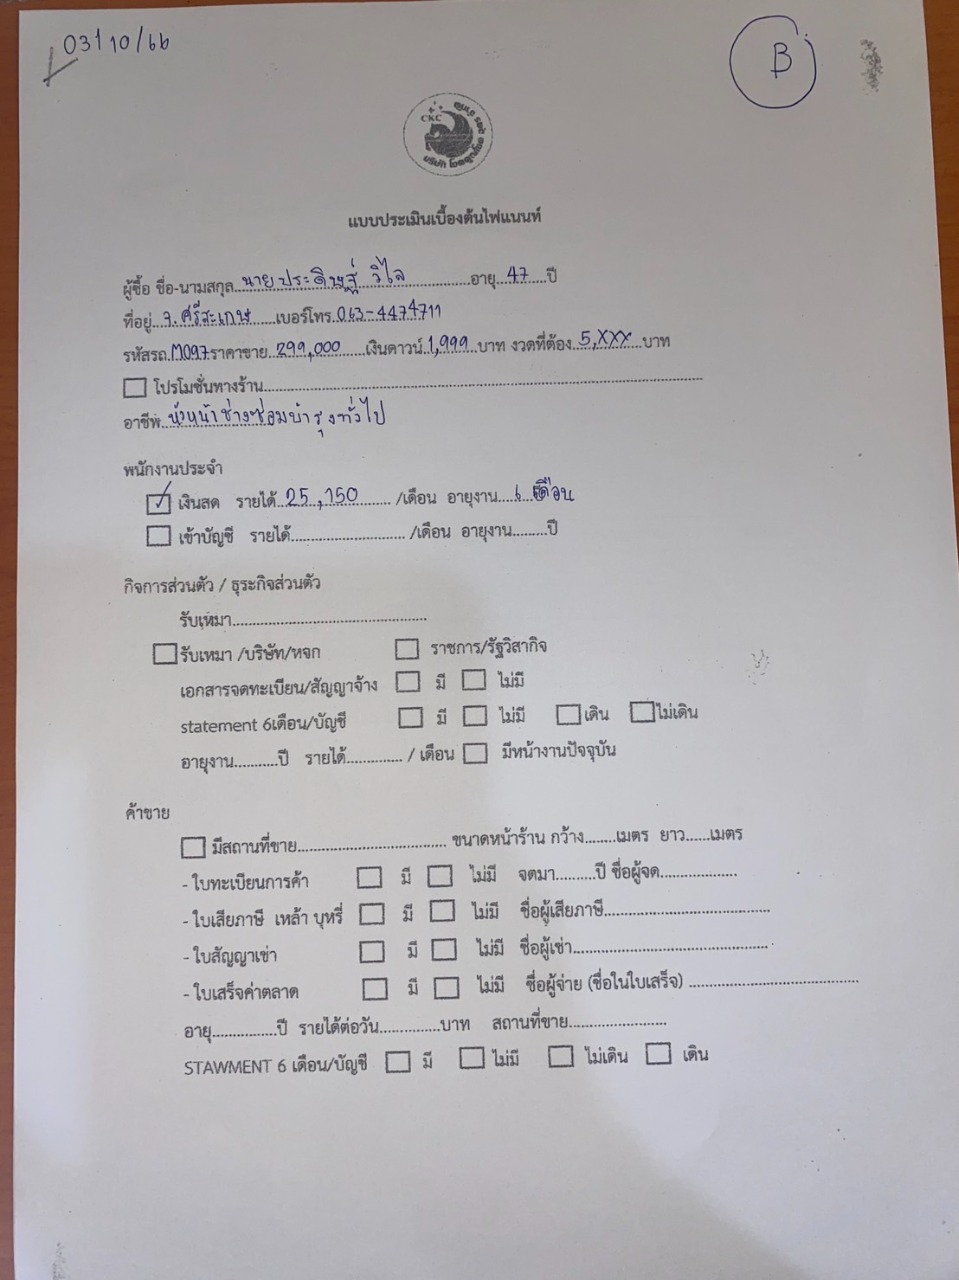 03/10/66
B
CKC
แบบประเมินเบื้องต้นไฟแนนท์
ผู้ซื้อ ชื่อ-นามสกุล...นายประดิษฐ์ วิไล...อายุ...47...ปี
ที่อยู่...จ.ศรีสะเกษ...เบอร์โทร.063-4474711
รหัสรถ.M097ราคาขาย.299,000...เงินดาวน์.1,999...บาท งวดที่ต้อง.5,XXX...บาท
โปรโมชั่นทางร้าน...
อาชีพ...หัวหน้าช่างซ่อมบำรุงทั่วไป
พนักงานประจำ
✓ เงินสด รายได้...25,150.../เดือน อายุงาน...6 เดือน
เข้าบัญชี รายได้.../เดือน อายุงาน...ปี
กิจการส่วนตัว / ธุระกิจส่วนตัว
รับเหมา...
รับเหมา /บริษัท/หจก ราชการ/รัฐวิสากิจ
เอกสารจดทะเบียน/สัญญาจ้าง มี ไม่มี
statement 6เดือน/บัญชี มี ไม่มี เดิน ไม่เดิน
อายุงาน...ปี รายได้... / เดือน มีหน้างานปัจจุบัน
ค้าขาย
มีสถานที่ขาย... ขนาดหน้าร้าน กว้าง...เมตร ยาว...เมตร
- ใบทะเบียนการค้า มี ไม่มี จดมา...ปี ชื่อผู้จด...
- ใบเสียภาษี เหล้า บุหรี่ มี ไม่มี ชื่อผู้เสียภาษี...
- ใบสัญญาเช่า มี ไม่มี ชื่อผู้เช่า...
- ใบเสร็จค่าตลาด มี ไม่มี ชื่อผู้จ่าย (ชื่อในใบเสร็จ) ...
อายุ...ปี รายได้ต่อวัน...บาท สถานที่ขาย...
STAWMENT 6 เดือน/บัญชี มี ไม่มี ไม่เดิน เดิน